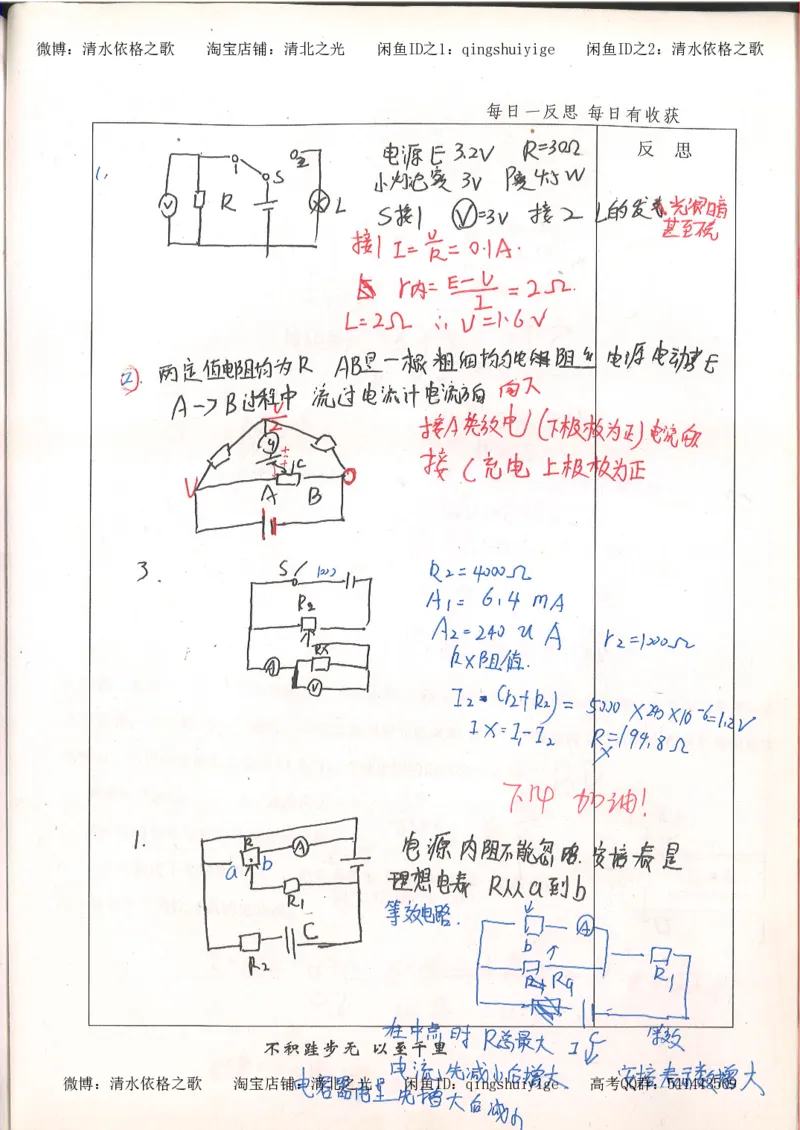 微博：清水依格之歌 淘宝店铺：清北之光 闲鱼ID之1：qingshuiyige 闲鱼ID之2：清水依格之歌
每日一反思 每日有收获
反 思
1,
电源E 3.2V R=30Ω
小灯泡 3V 4.5W
S接1 Ⓥ=3V 接2 L的发 光很暗
甚至不亮
V R 1 S 2 L
接1 I=U/R=0.1A.
r内=E-U/I=2Ω.
L=2Ω ∴V=1.6V
2). 两定值电阻均为R AB是一根粗细均匀电阻丝 电源电动势E
A→B过程中 流过电流计电流方向 向下
接A类放电 (下极板为正) 电流向
接C充电 上极板为正
A B C
3.
S R2 A Rx V
R2=4000Ω
A1=6.4mA
A2=240uA r2=1000Ω
Rx阻值.
I2 (r2+R2)=5000×240×10-6=1.2V
Ix=I1-I2 Rx=194.8Ω
下14 加油!
1.
R A a b R1 R2 C
电源内阻不能忽略 安培表是
理想电表 R从a到b
等效电路.
b A Ra R1
在中点时 R总最大 I 等效
不积跬步无 以至千里
电流先减小后增大 安培表示数增大
微博：清水依格之歌 淘宝店铺：清北之光 闲鱼ID：qingshuiyige 高考QQ群：
电容器电量先增大后减小